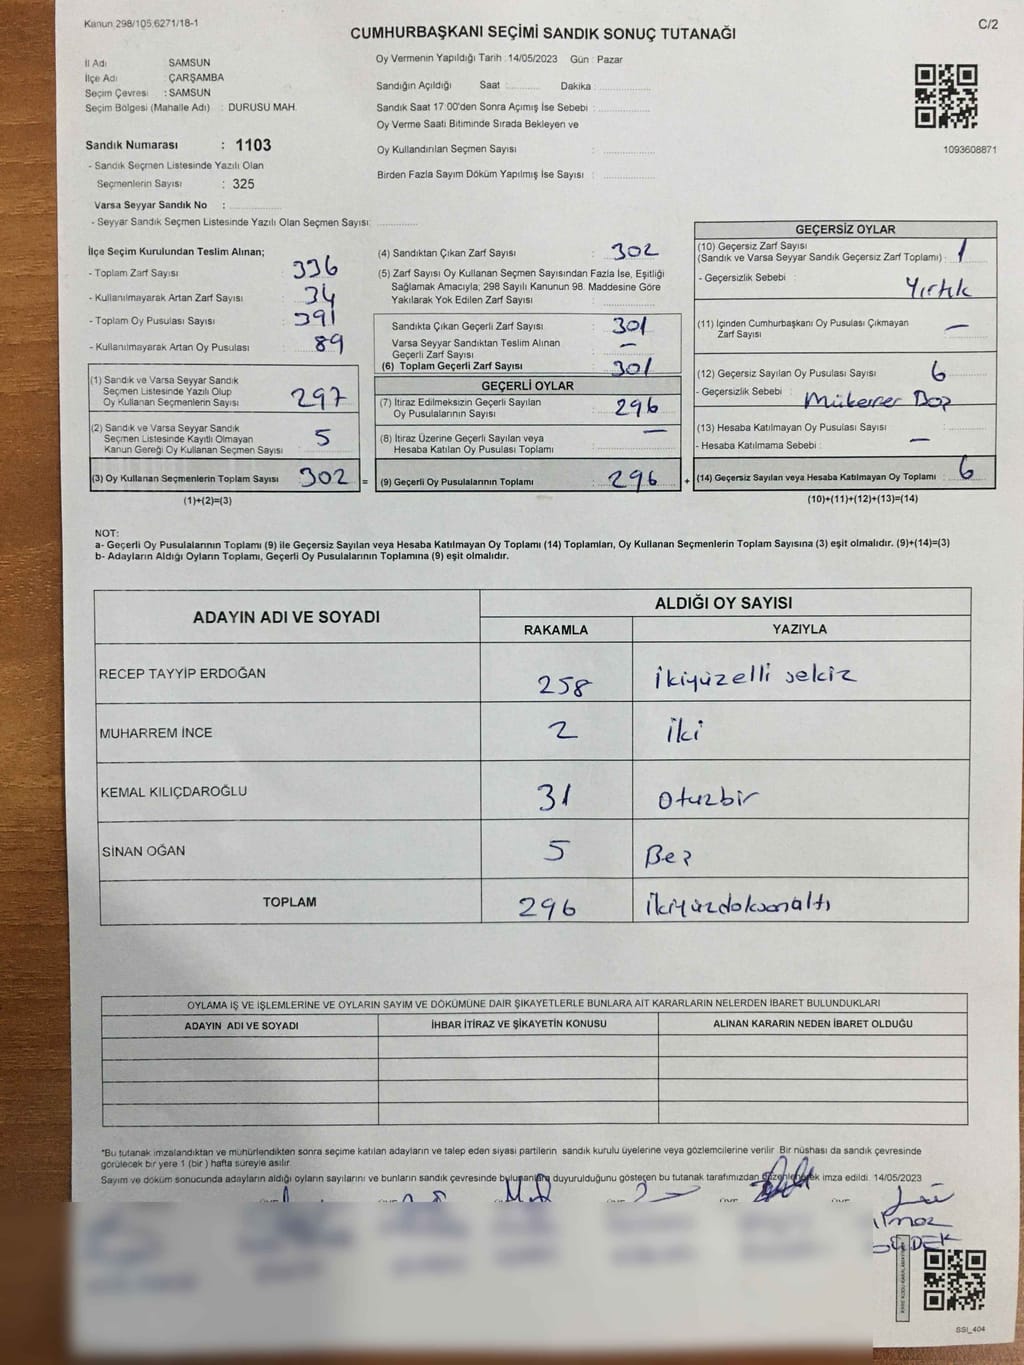 Kanun 298/105.6271/18-1
C/2
CUMHURBAŞKANI SEÇİMİ SANDIK SONUÇ TUTANAĞI
İl Adı SAMSUN
İlçe Adı : ÇARŞAMBA
Seçim Çevresi : SAMSUN
Seçim Bölgesi (Mahalle Adı) : DURUSU MAH.
Sandık Numarası : 1103
- Sandık Seçmen Listesinde Yazılı Olan
Seçmenlerin Sayısı : 325
Varsa Seyyar Sandık No :
- Seyyar Sandık Seçmen Listesinde Yazılı Olan Seçmen Sayısı:
Oy Vermenin Yapıldığı Tarih : 14/05/2023 Gün : Pazar
Sandığın Açıldığı Saat : Dakika :
Sandık Saat 17:00'den Sonra Açımış İse Sebebi :
Oy Verme Saati Bitiminde Sırada Bekleyen ve
Oy Kullandırılan Seçmen Sayısı :
Birden Fazla Sayım Döküm Yapılmış İse Sayısı :
1093608871
İlçe Seçim Kurulundan Teslim Alınan;
- Toplam Zarf Sayısı : 336
- Kullanılmayarak Artan Zarf Sayısı : 34
- Toplam Oy Pusulası Sayısı : 391
- Kullanılmayarak Artan Oy Pusulası : 89
(1) Sandık ve Varsa Seyyar Sandık
Seçmen Listesinde Yazılı Olup
Oy Kullanan Seçmenlerin Sayısı : 297
(2) Sandık ve Varsa Seyyar Sandık
Seçmen Listesinde Kayıtlı Olmayan
Kanun Gereği Oy Kullanan Seçmen Sayısı : 5
(3) Oy Kullanan Seçmenlerin Toplam Sayısı : 302 =
(1)+(2)=(3)
(4) Sandıktan Çıkan Zarf Sayısı : 302
(5) Zarf Sayısı Oy Kullanan Seçmen Sayısından Fazla İse, Eşitliği
Sağlamak Amacıyla; 298 Sayılı Kanunun 98. Maddesine Göre
Yakılarak Yok Edilen Zarf Sayısı :
Sandıkta Çıkan Geçerli Zarf Sayısı : 301
Varsa Seyyar Sandıktan Teslim Alınan
Geçerli Zarf Sayısı : —
(6) Toplam Geçerli Zarf Sayısı : 301
GEÇERLİ OYLAR
(7) İtiraz Edilmeksizin Geçerli Sayılan
Oy Pusulalarının Sayısı : 296
(8) İtiraz Üzerine Geçerli Sayılan veya
Hesaba Katılan Oy Pusulası Toplamı : —
(9) Geçerli Oy Pusulalarının Toplamı : 296 +
GEÇERSİZ OYLAR
(10) Geçersiz Zarf Sayısı
(Sandık ve Varsa Seyyar Sandık Geçersiz Zarf Toplamı) : 1
- Geçersizlik Sebebi :
Yırtık
(11) İçinden Cumhurbaşkanı Oy Pusulası Çıkmayan
Zarf Sayısı : —
(12) Geçersiz Sayılan Oy Pusulası Sayısı : 6
- Geçersizlik Sebebi : Mükerrer
(13) Hesaba Katılmayan Oy Pusulası Sayısı :
- Hesaba Katılmama Sebebi : —
(14) Geçersiz Sayılan veya Hesaba Katılmayan Oy Toplamı : 6
(10)+(11)+(12)+(13)=(14)
NOT:
a- Geçerli Oy Pusulalarının Toplamı (9) ile Geçersiz Sayılan veya Hesaba Katılmayan Oy Toplamı (14) Toplamları, Oy Kullanan Seçmenlerin Toplam Sayısına (3) eşit olmalıdır. (9)+(14)=(3)
b- Adayların Aldığı Oyların Toplamı, Geçerli Oy Pusulalarının Toplamına (9) eşit olmalıdır.
ADAYIN ADI VE SOYADI
ALDIĞI OY SAYISI
RAKAMLA YAZIYLA
RECEP TAYYİP ERDOĞAN 258 İkiyüzelli sekiz
MUHARREM İNCE 2 İki
KEMAL KILIÇDAROĞLU 31 Otuzbir
SİNAN OĞAN 5 Beş
TOPLAM 296 İkiyüzdoksanaltı
OYLAMA İŞ VE İŞLEMLERİNE VE OYLARIN SAYIM VE DÖKÜMÜNE DAİR ŞİKAYETLERLE BUNLARA AİT KARARLARIN NELERDEN İBARET BULUNDUKLARI
ADAYIN ADI VE SOYADI İHBAR İTİRAZ VE ŞİKAYETİN KONUSU ALINAN KARARIN NEDEN İBARET OLDUĞU
*Bu tutanak imzalandıktan ve mühürlendikten sonra seçime katılan adayların ve talep eden siyasi partilerin sandık kurulu üyelerine veya gözlemcilerine verilir. Bir nüshası da sandık çevresinde
görülecek bir yere 1 (bir) hafta süreyle asılır.
Sayım ve döküm sonucunda adayların aldığı oyların sayılarını ve bunların sandık çevresinde bulunanlara duyurulduğunu gösteren bu tutanak tarafımızdan düzenlenerek imza edildi. 14/05/2023
SSI_404